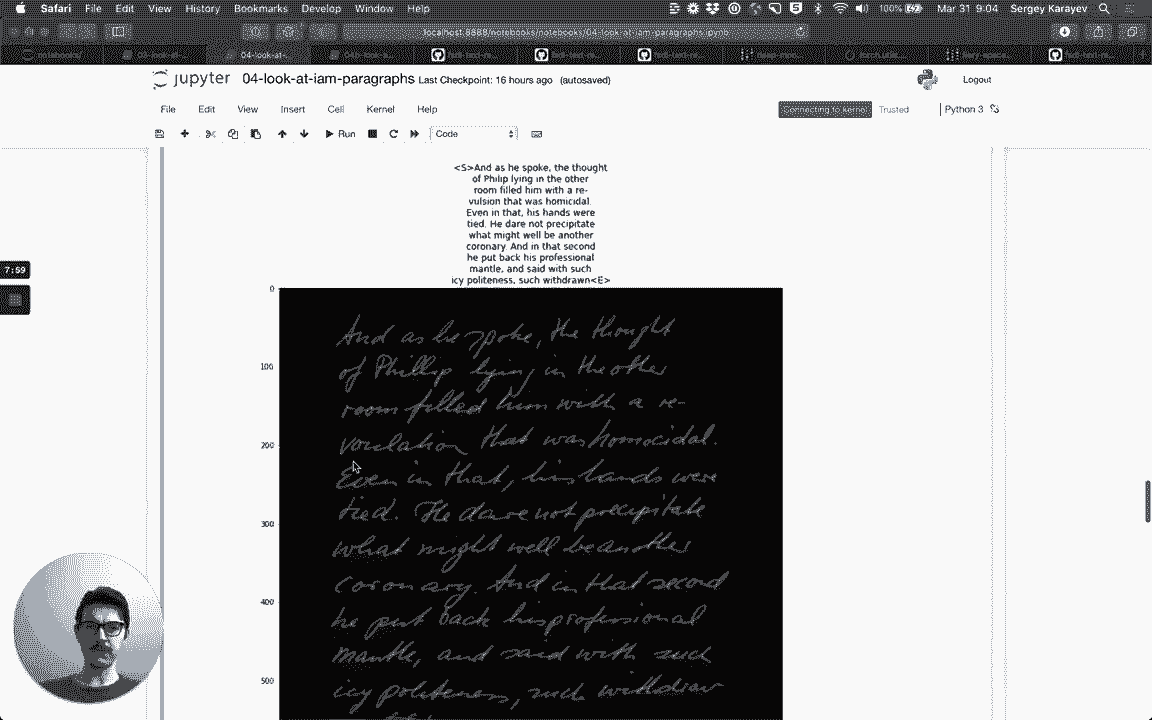 Safari File Edit View History Bookmarks Develop Window Help 100% Mar 31 9:04 Sergey Karayev
localhost:8888/notebooks/notebooks/04-look-at-iam-paragraphs.ipynb
04-look-at-
jupyter 04-look-at-iam-paragraphs Last Checkpoint: 16 hours ago (autosaved) Logout
File Edit View Insert Cell Kernel Help Connecting to kernel Trusted Python 3
Run Code
<S>And as he spoke, the thought
of Philip lying in the other
room filled him with a re-
vulsion that was homicidal.
Even in that, his hands were
tied. He dare not precipitate
what might well be another
coronary. And in that second
he put back his professional
mantle, and said with such
icy politeness, such withdrawn<E>
7:59
0
100
200
300
400
500
And as he spoke, the thought
of Phillip lying in the other
room filled him with a re-
that was homocidal.
Even in that, his hands were
tied. He dare not precipitate
what might well be another
coronary. And in that second
he put back his professional
mantle, and said with such
icy politeness, such withdraw